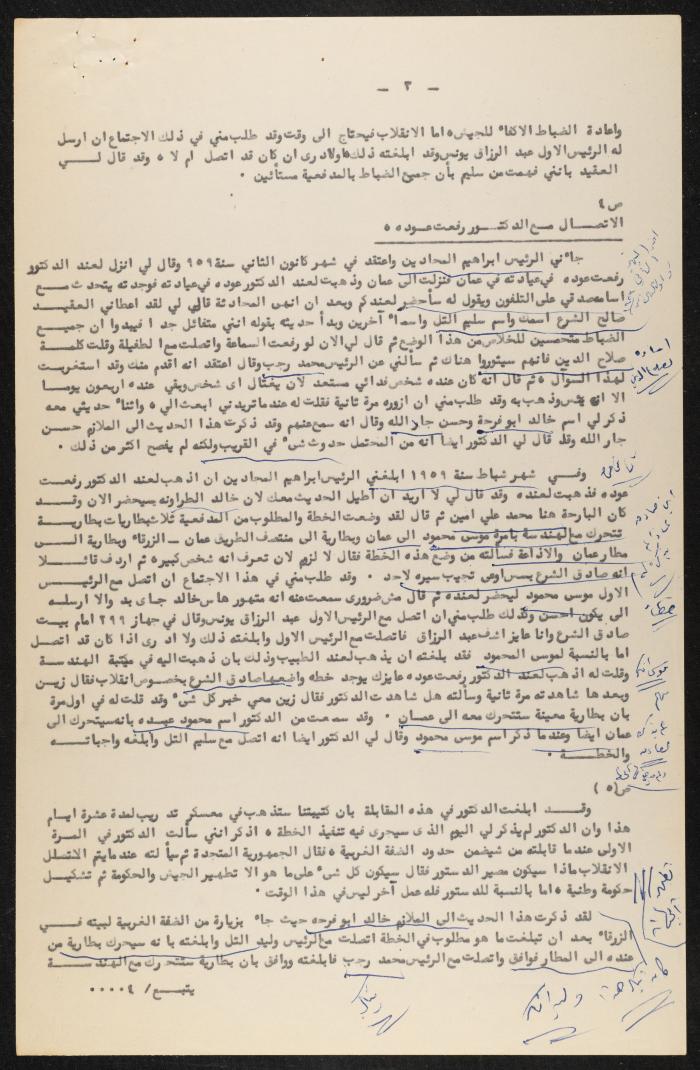 - ٣ -
واعادة الضباط الاكفاء للجيش ٥ اما الانقلاب فيحتاج الى وقت وقد طلب مني في ذلك الاجتماع ان ارسل
له الرئيس الاول عبد الرزاق يونس وقد ابلغته ذلك ولا ادرى ان كان قد اتصل ام لا ٥ وقد قال لـــي
العقيد بانني فهمت من سليم بأن جميع الضباط بالمدفعية مستأئين ٠
ص ٤
الاتصـــال مـع الدكتـــور رفعت عوده ٥٥
جاءني الرئيس ابراهيم المحادين واعتقد في شهر كانون الثاني سنة ٩٥٩ وقال لي انزل لعند الدكتور
رفعت عوده في عيادته في عمان فنزلت الى عمان وذهبت لعند الدكتور عوده في عيادته فوجدته يتحدث مــع
اسامه صدقي على التلفون ويقول له سأحضر لعندكم وبعد ان انهى المحادثة قال لي لقد اعطاني العقيــد
صالح الشرع اسمك واسم سليم التل واسماء آخرين وبدأ حديثه بقوله انني متفائل جدا فيبدوا ان جميــع
الضباط متحمسين للخلاص من هذا الوضع ثم قال لي الان لو رفعت السماعة واتصلت مع الطفيلة وقلت كلمــة
صلاح الدين فانهم سيثوروا هناك ثم سألني عن الرئيس محمد رجب وقال اعتقد انه اقدم منك وقد استغربــت
لهذا السوآل ٥ ثم قال انه كان عنده شخص فدائي مستعد لان يغتال اى شخص وبقي عنده اربعون يومــا
الا انه يئس وذهب به وقد طلب مني ان ازوره مرة ثانية فقلت له عندما تريدني ابعث الي ٥ واثناء حديثي معه
ذكر لي اسم خالد ابو فرحة وحسن جار الله وقال انه سمع عنهم وقد ذكرت هذا الحديث الى الملازم حســن
جار الله وقد قال لي الدكتور ايضا انه من المحتمل حدوث شيء في القريب ولكنه لم يفصح اكثر من ذلك ٠
وفــي شهر شباط سنة ١٩٥٩ ابلغني الرئيس ابراهيم المحادين ان اذهب لعند الدكتور رفعــت
عوده فذهبت لعنده وقد قال لي لا اريد ان اطيل الحديث معك لان خالد الطراونه سيحضر الان وقــد
كان البارحة هنا محمد علي امين ثم قال لقد وضعت الخطة والمطلوب من المدفعية ثلاث بطاريات بطاريــة
تتحرك مع الهندسة بامرة موسى محمود الى عمان وبطارية الى منتصف الطريق عمان - الزرقاء وبطارية الــى
مطار عمان والاذاعة فسألته من وضع هذه الخطة فقال لا لزوم لان تعرف انه شخص كبير ٥ ثم اردف قائـــلا
انه صادق الشرع بس اوعى تجيب سيره لاحد ٠ وقد طلب مني في هذا الاجتماع ان اتصل مع الرئيــس
الاول موسى محمود ليحضر لعنده ثم قال مش ضرورى سمعت عنه انه متهور هاس خالد جاى بد والا ارسلــه
الى يكون احسن وكذلك طلب مني ان اتصل مع الرئيس الاول عبد الرزاق يونس وقال في جهاز ٢٩٩ امام بيــت
صادق الشرع وانا عايز اشف عبد الرزاق فاتصلت مع الرئيس الاول وابلغته ذلك ولا ادرى اذا كان قد اتصل
اما بالنسبة لموسى المحمود فقد بلغته ان يذهب لعند الطبيب وذلك بان ذهبت اليه في مكتبة الهندســة
وقلت له اذهب لعند الدكتور رفعت عوده عايزك يوجد خطه واضعها صادق الشرع بخصوص انقلاب فقال زيــن
وبعدها شاهدته مرة ثانية وسألته هل شاهدت الدكتور فقال زين معي خبر كل شيء وقد قلت له في اول مرة
بان بطارية معينة ستتحرك معه الى عمــان ٠ وقد سمعت من الدكتور اسم محمود عبيده بانه سيتحرك الى
عمان ايضا وعندما ذكر اسم موسى محمود وقال لي الدكتور ايضا انه اتصل مع سليم التل وابلغه واجباتــه
والخطــــة ٠
ص(٥)
وقـــد ابلغت الدكتور في هذه المقابلة بان كتيبتنا ستذهب في معسكر تدريب لمدة عشرة ايــام
هذا وان الدكتور لم يذكر لي اليوم الذى سيجرى فيه تنفيذ الخطة ٥ اذكر انني سألت الدكتور في المــرة
الاولى عندما قابلته من سيضمن حدود الضفة الغربية ٥ فقال الجمهورية المتحدة ثم سألته عندما يتم
الانقلاب ماذا سيكون مصير الدستور فقال سيكون كل شيء على ما هو الا تطهير الجيش والحكومة ثم تشكيــل
حكومة وطنية ٥ اما بالنسبة للدستور فله عمل آخر ليس في هذا الوقت ٠
لقد ذكرت هذا الحديث الى الملازم خالد ابو فرحه حيث جاء بزيارة من الضفة الغربية لبيته فــي
الزرقاء بعد ان تبلغت ما هو مطلوب في الخطة اتصلت مع الرئيس وليد التل وابلغته بانه سيحرك بطارية من
عنده الى المطار فوافق واتصلت مع الرئيس محمد رجب فابلغته ووافق بان بطارية ستتحرك مع الهندســة
يتبـــع/ ٤ ٠٠٠٠